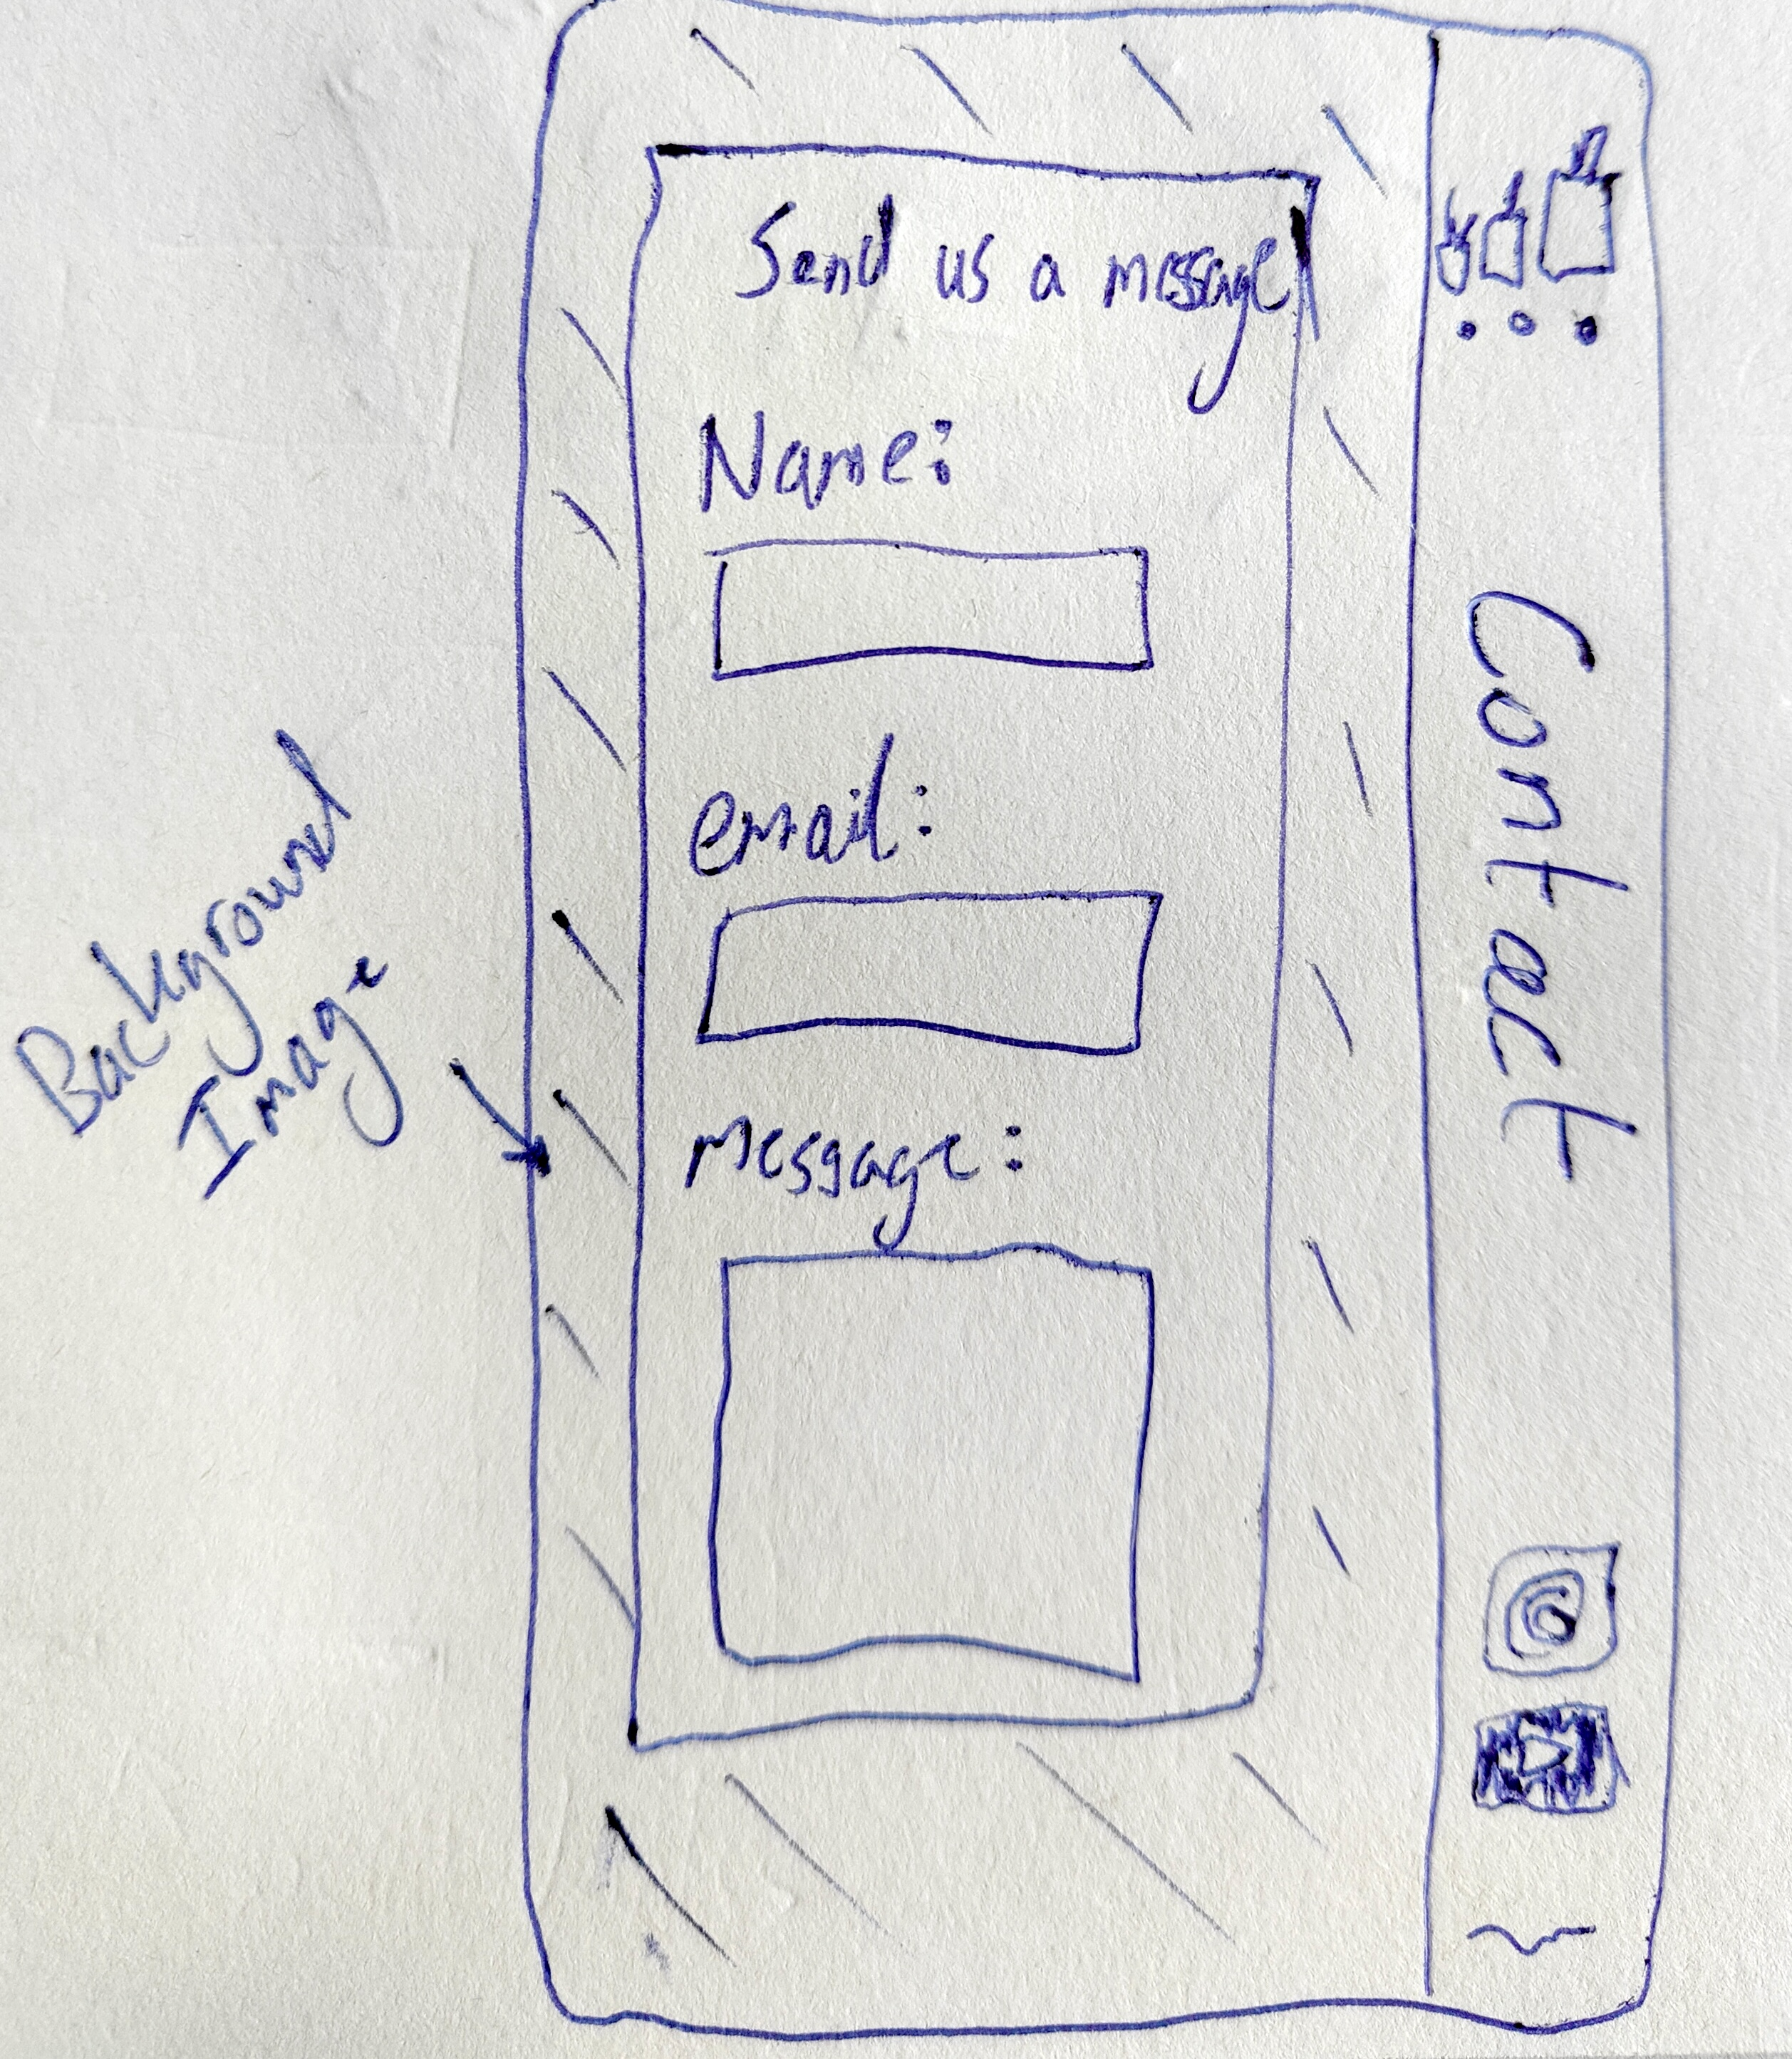 Send us a message
Name:
email:
message:
Contact
Background
Image